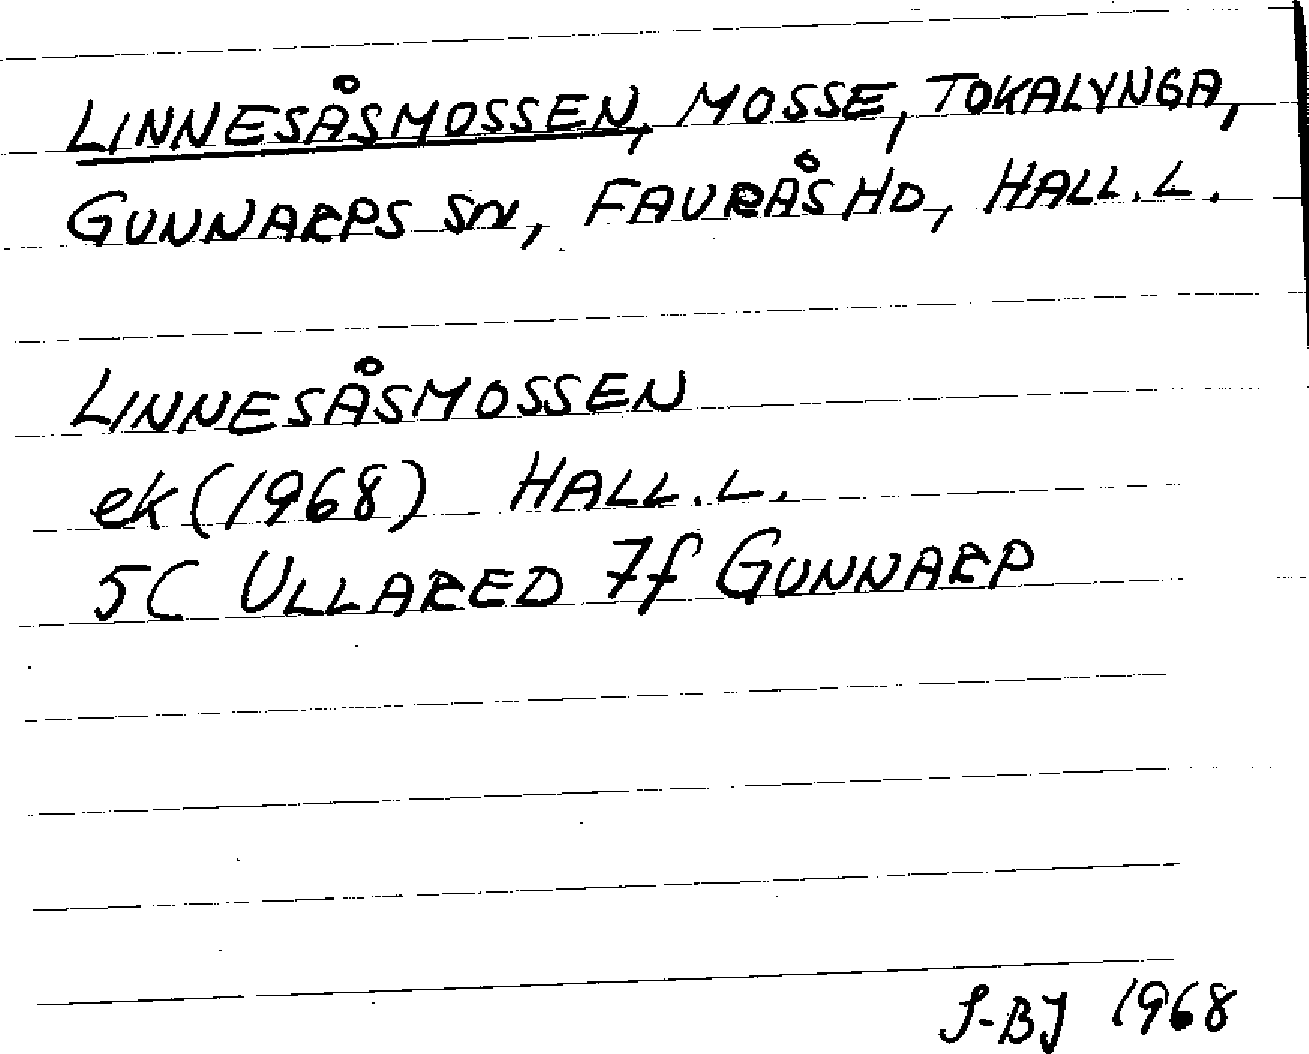 LINNESÅSMOSSEN, MOSSE, TOKALYNGA,
GUNNARPS SN, FAURÅS HD, HALL.L.
LINNESÅSMOSSEN
ek (1968) HALL.L.
5C ULLARED 7f GUNNARP
S-BJ 1968